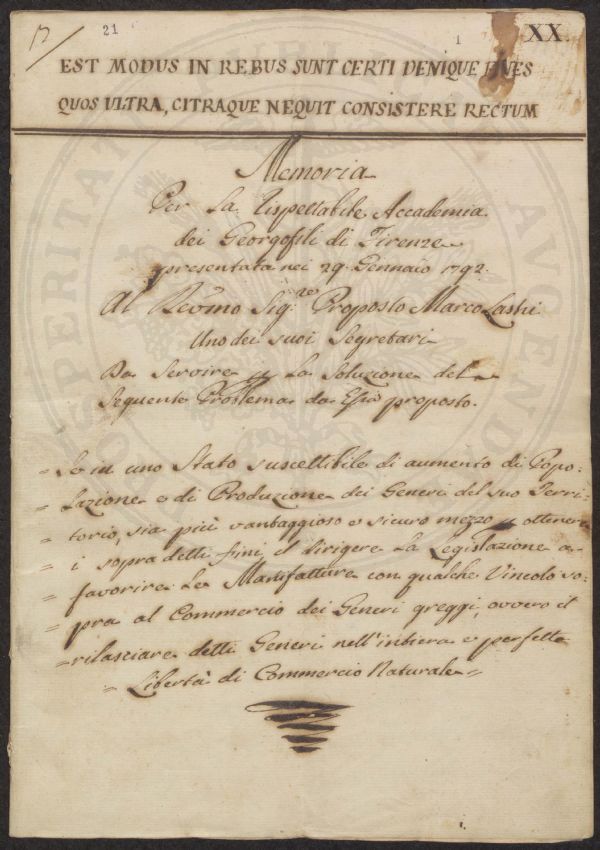 17 21 1 XX
EST MODUS IN REBUS SUNT CERTI DENIQUE FINES
QUOS ULTRA, CITRAQUE NEQUIT CONSISTERE RECTUM
Memoria
Per La Rispettabile Accademia
dei Georgofili di Firenze
presentata nei 29. Gennaio 1792.
Al Revmo Sigre Proposto Marco Lastri
Uno dei suoi Segretari
Da Servire p La Soluzione del
Seguente Problema da Essa proposto.
= Se in uno Stato suscettibile di aumento di Popo:
= lazione e di Produzione dei Generi del suo Terri:
= torio, sia più vantaggioso e sicuro mezzo p ottenere
= i sopra detti fini, il dirigere La Legislazione a
= favorire Le Manifatture con qualche Vincolo so:
= pra al Commercio dei Generi greggi, ovvero il
= rilasciare detti Generi nell'intiera e perfetta
= Libertà di Commercio Naturale =
PROSPERITATI AUGENDAE